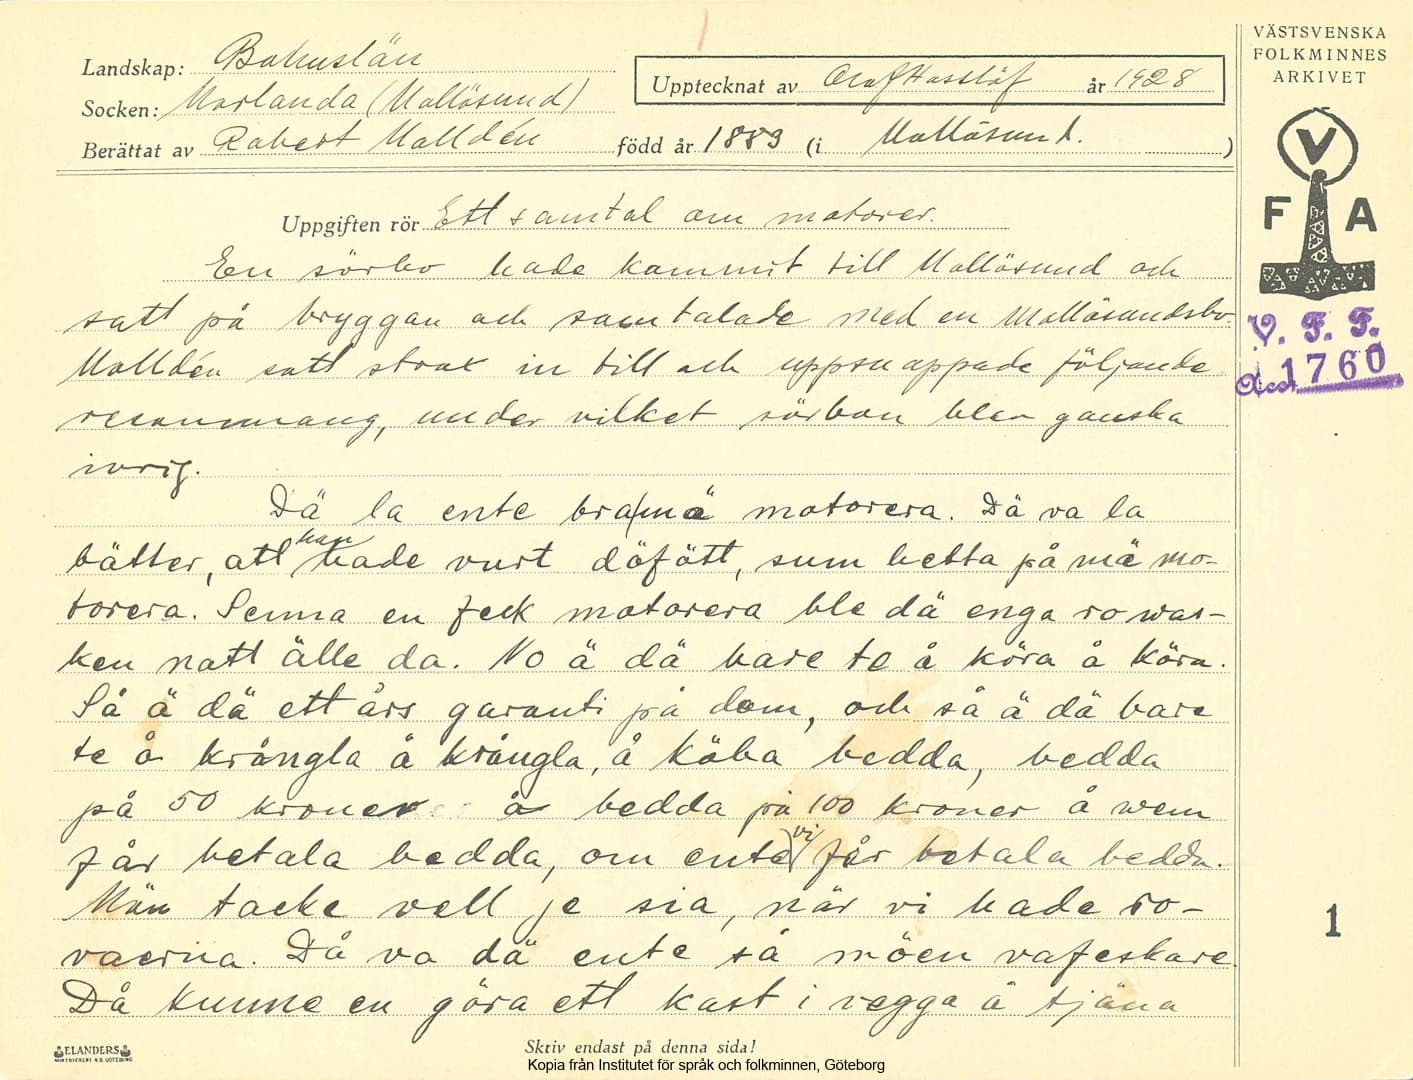 Landskap: Bohuslän
Socken: Morlanda (Mollösund)
Berättat av Robert Malldén född år 1883 (i Mollösund.)
Upptecknat av Olof Hasslöf år 1928
VÄSTSVENSKA
FOLKMINNES
ARKIVET
V
F A
V. F. F.
Acc. 1760
Uppgiften rör Ett samtal om motorer.
En sörbo hade kommit till Mollösund och
satt på bryggan och samtalade med en Mollösundsbo.
Malldén satt strax in till och uppsnappade följande
resonnmang, under vilket sörbon blev ganska
ivrig.
Dä la ente bra mä motorera. Dä va la
bätter, att han hade vurt döfött, sum hetta på mä mo-
torera. Senna en feck motorera ble dä enga ro war-
ken natt älle da. No ä dä bare te å köra å köra.
Så ä dä ett års garanti på dom, och så ä dä bare
te å krångla å krångla, å köba bedda, bedda
på 50 kroner å bedda på 100 kroner å wem
får betala bedda, om ente vi får betala bedda.
Män tacke vell je sia, når vi hade ro-
vaerna. Då va dä ente så möen vafeskare.
Då kunne en göra ett kast i vegga å tjäna
1
ELANDERS
BOKTRYCKERI A.B. GÖTEBORG
Skriv endast på denna sida!
Kopia från Institutet för språk och folkminnen, Göteborg